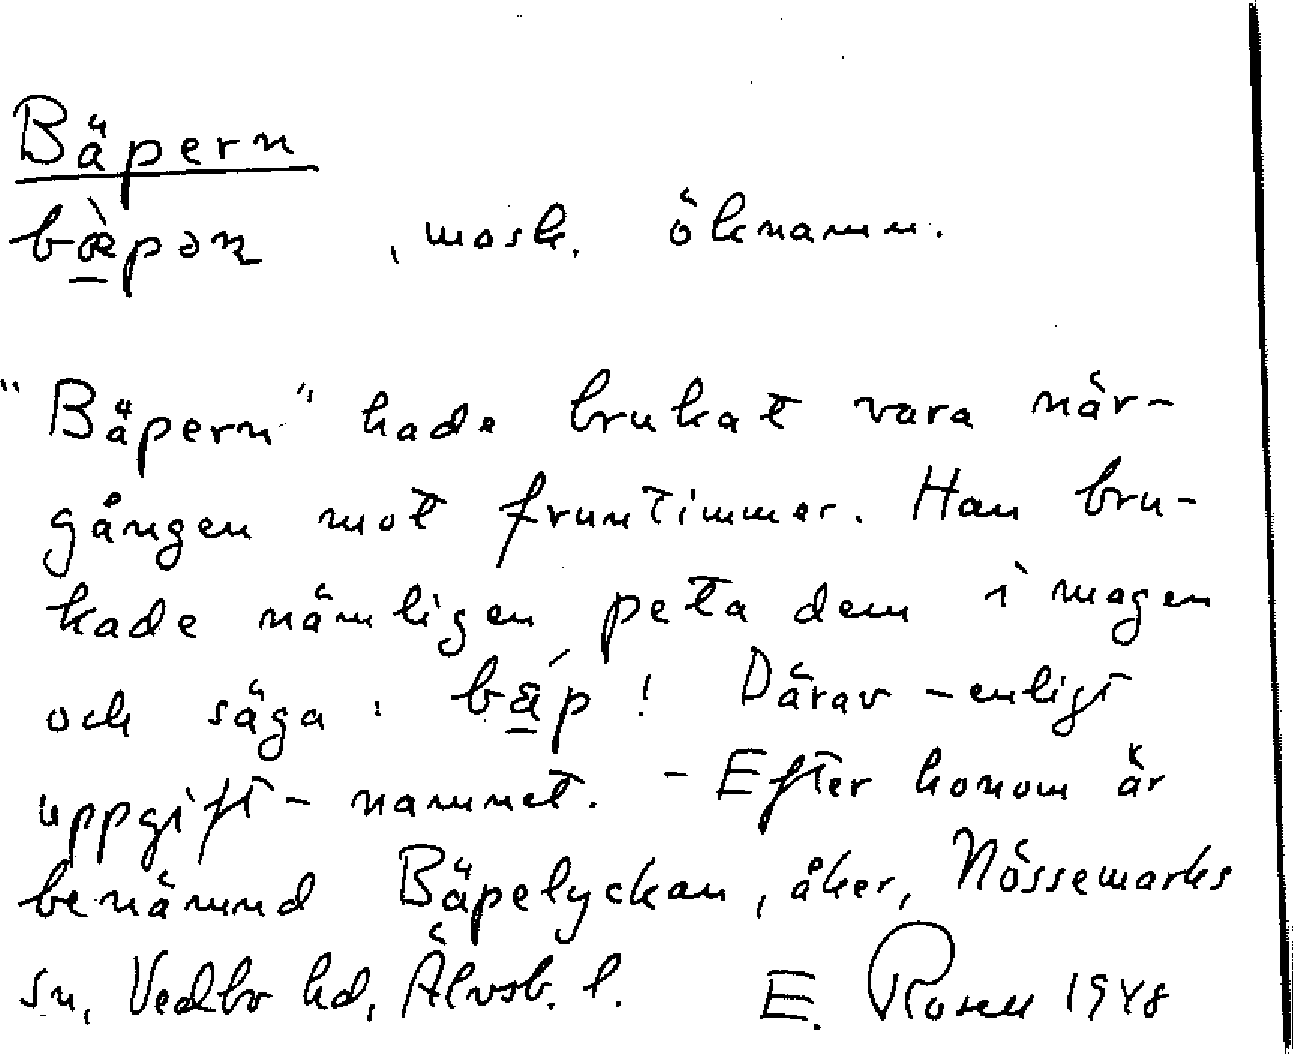 Bäpern
bæ̀pən , mask. öknamn.
"Bäpern" hade brukat vara när-
gången mot fruntimmer. Han bru-
kade nämligen peta dem i magen
och säga: bä́p! Därav – enligt
uppgift – namnet. – Efter honom är
benämnd Bäpelyckan, åker, Nössemarks
sn, Vedbo hd, Älvsb. l. E. Rosen 1948